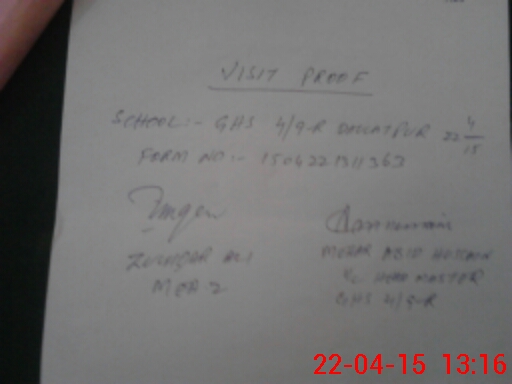 VISIT PROOF
SCHOOL:- GHS 4/9-R DAULATPUR 22 4/15
FORM NO:- 1504221311363
ZULFIQAR ALI
MEA 2
MEHAR ABID HUSSAIN
I/C HEAD MASTER
GHS 4/9-R
22-04-15 13:16